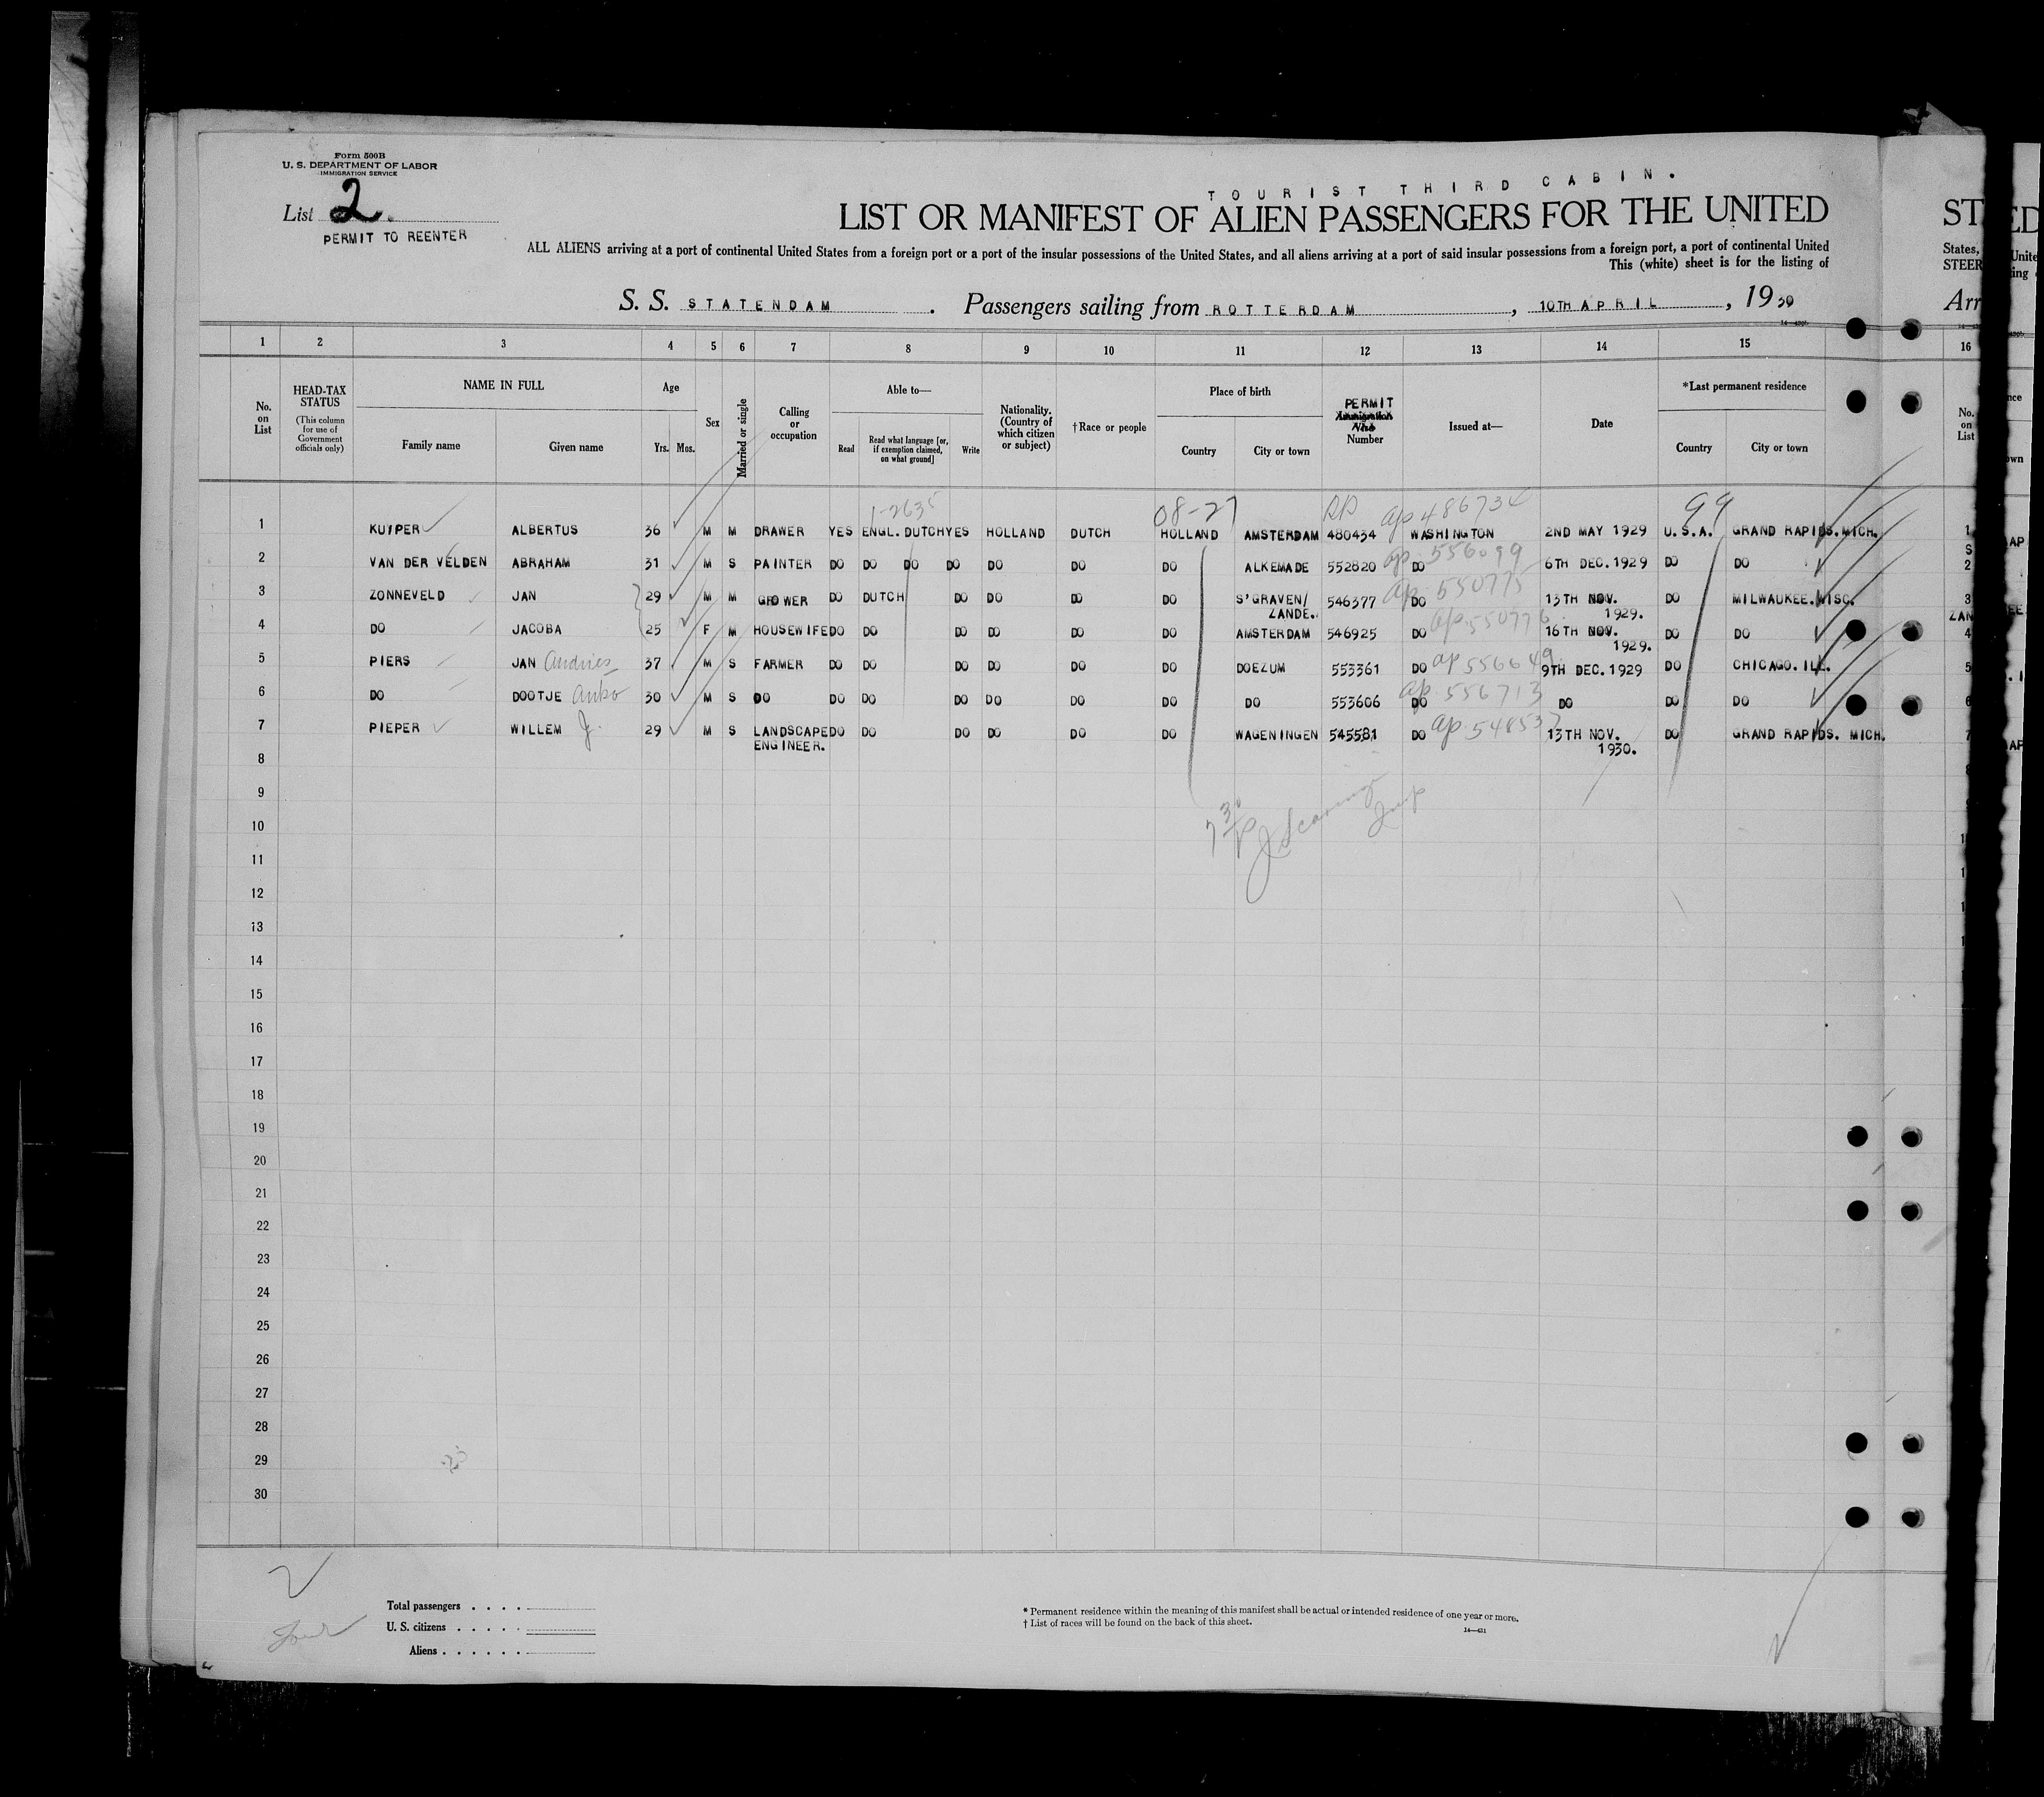 Form 500B
U. S. DEPARTMENT OF LABOR
IMMIGRATION SERVICE
List 2.
PERMIT TO REENTER
TOURIST THIRD CABIN.
LIST OR MANIFEST OF ALIEN PASSENGERS FOR THE UNITED
ALL ALIENS arriving at a port of continental United States from a foreign port or a port of the insular possessions of the United States, and all aliens arriving at a port of said insular possessions from a foreign port, a port of continental United
This (white) sheet is for the listing of
S. S. STATENDAM. Passengers sailing from ROTTERDAM, 10TH APRIL, 1930
1 2 3 4 5 6 7 8 9 10 11 12 13 14 15
No. on List
HEAD-TAX STATUS
(This column for use of Government officials only)
NAME IN FULL
Family name
Given name
Age
Yrs. Mos.
Sex
Married or single
Calling or occupation
Able to—
Read
Read what language [or, if exemption claimed, on what ground]
Write
Nationality. (Country of which citizen or subject)
†Race or people
Place of birth
Country
City or town
PERMIT
Immigration Visa
Number
Issued at—
Date
*Last permanent residence
Country
City or town
1-2635 08-27 ap 486734 99
1 KUYPER ALBERTUS 36 M M DRAWER YES ENGL. DUTCH YES HOLLAND DUTCH HOLLAND AMSTERDAM 480434 WASHINGTON 2ND MAY 1929 U.S.A. GRAND RAPIDS. MICH.
2 VAN DER VELDEN ABRAHAM 31 M S PAINTER DO DO DO DO DO DO DO ALKEMADE 552820 DO ap. 556099 6TH DEC. 1929 DO DO
3 ZONNEVELD JAN 29 M M GROWER DO DUTCH DO DO DO DO S'GRAVEN/ ZANDE. 546377 DO ap. 550775 13TH NOV. 1929. DO MILWAUKEE. WISC.
4 DO JACOBA 25 F M HOUSEWIFE DO DO DO DO DO DO AMSTERDAM 546925 DO ap. 550776 16TH NOV. 1929. DO DO
5 PIERS JAN Andries 37 M S FARMER DO DO DO DO DO DO DOEZUM 553361 DO ap 556649 9TH DEC. 1929 DO CHICAGO. ILL.
6 DO DOOTJE 30 M S DO DO DO DO DO DO DO DO 553606 DO ap. 556713 DO DO DO
7 PIEPER WILLEM J. 29 M S LANDSCAPE ENGINEER. DO DO DO DO DO DO WAGENINGEN 545581 DO ap. 548537 13TH NOV. 1930. DO GRAND RAPIDS. MICH.
8
9
10
11
12
13
14
15
16
17
18
19
20
21
22
23
24
25
26
27
28
29
30
Total passengers . . . .
U. S. citizens . . . . .
Aliens . . . . . .
* Permanent residence within the meaning of this manifest shall be actual or intended residence of one year or more.
† List of races will be found on the back of this sheet.
14—431
ST
States,
STEER
Arr
16
No. on List